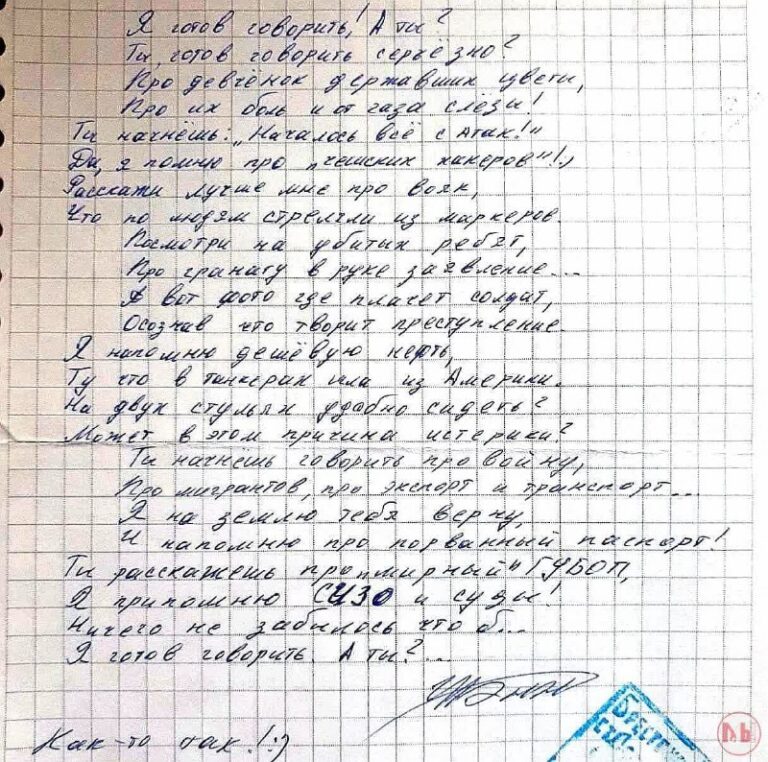 Я готов говорить! А ты?
Ты, готов говорить серьёзно?
Про девчёнок державших цветы,
Про их боль и от газа слёзы!
Ты начнёшь: „Началось всё с атак!"
Да, я помню про „чешских хакеров"!)
Расскажи лучше мне про вояк,
Что по людям стреляли из маркеров.
Посмотри на убитых ребят,
Про гранату в руке заявление...
А вот фото где плачет солдат,
Осознав что творит преступление.
Я напомню дешёвую нефть,
Ту что в танкерах шла из Америки.
На двух стульях удобно сидеть?
Может в этом причина истерики?
Ты начнёшь говорить про войну,
Про мигрантов, про экспорт и транспорт...
Я на землю тебя верну,
И напомню про порванный паспорт!
Ты расскажешь про „мирный" ГУБОП,
Я припомню СИЗО и суды!
Ничего не забылось что б...
Я готов говорить. А ты?...
Как-то так!:)